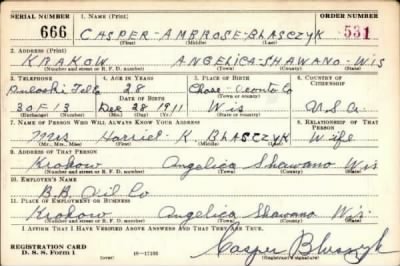 SERIAL NUMBER 1. NAME (Print) ORDER NUMBER
666 CASPER - AMBROSE - BLASCZYK 531
(First) (Middle) (Last)
2. ADDRESS (Print)
KRAKOW ANGELICA - SHAWANO - WIS
(Number and street or R. F. D. number) (Town) (County) (State)
3. TELEPHONE 4. AGE IN YEARS 5. PLACE OF BIRTH 6. COUNTRY OF CITIZENSHIP
Pulaski Tele 28 Chase - Oconto Co
DATE OF BIRTH
30F13 Dec 28 1911 Wis U.S.A.
(Mo.) (Day) (Yr.)
7. NAME OF PERSON WHO WILL ALWAYS KNOW YOUR ADDRESS 8. RELATIONSHIP OF THAT PERSON
Mrs Harriet K. BLASCZYK Wife
(Mr., Mrs., Miss) (First) (Middle) (Last)
9. ADDRESS OF THAT PERSON
Krakow Angelica Shawano Wis
(Number and street or R. F. D. number) (Town) (County) (State)
10. EMPLOYER'S NAME
B.B. Oil Co
11. PLACE OF EMPLOYMENT OR BUSINESS
Krakow Angelica Shawano Wis.
(Number and street or R. F. D. number) (Town) (County) (State)
I AFFIRM THAT I HAVE VERIFIED ABOVE ANSWERS AND THAT THEY ARE TRUE.
REGISTRATION CARD
D. S. S. Form 1 16-17105 Casper Blasczyk
(over)